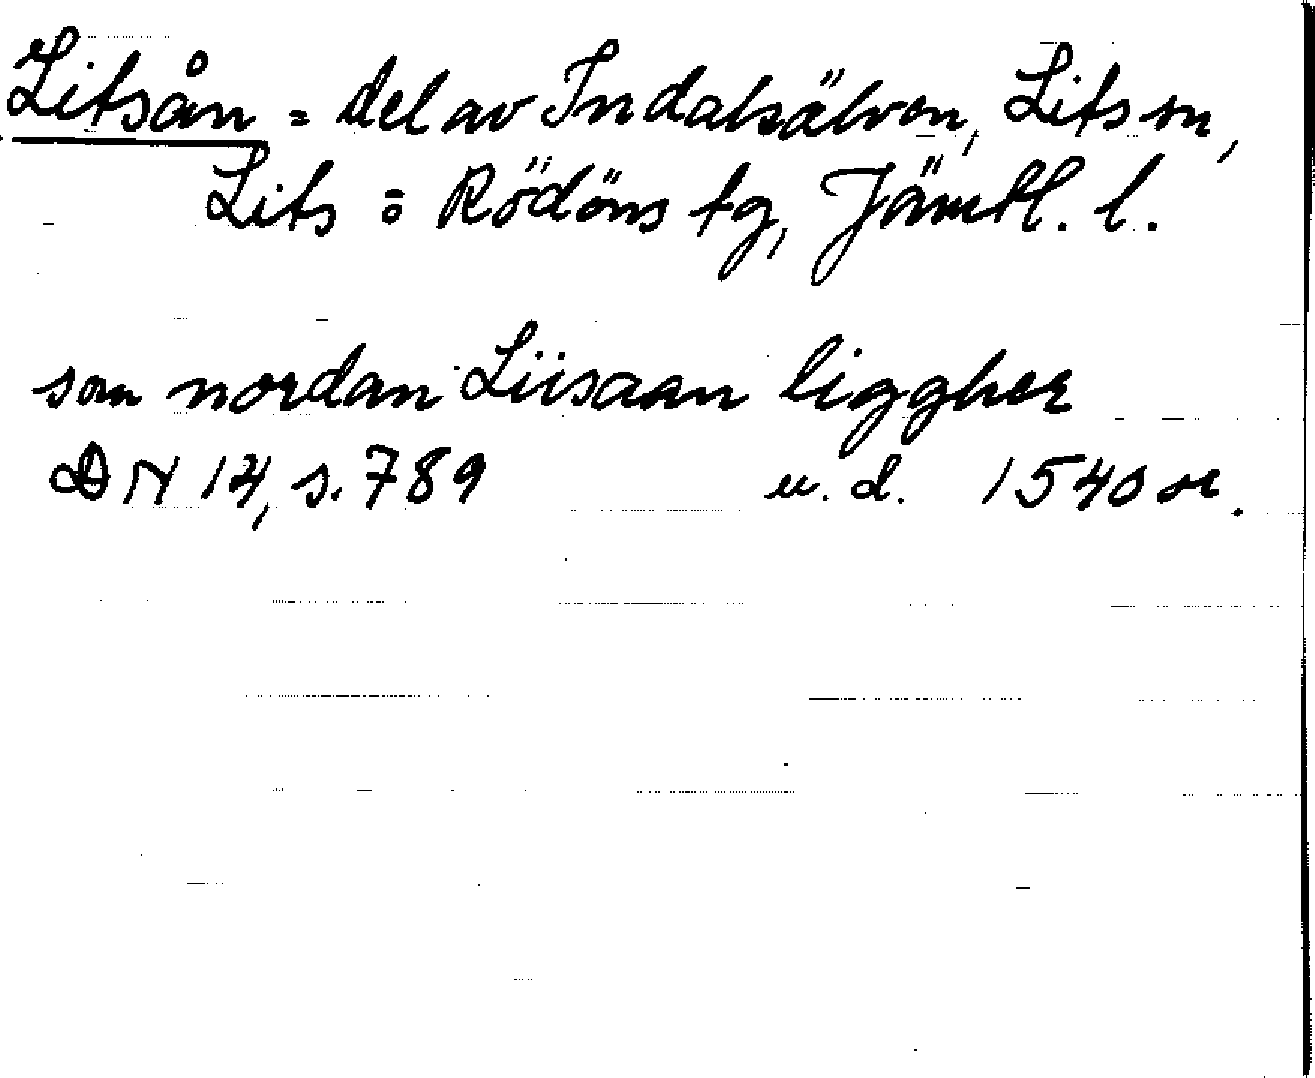 Litsån = del av Indalsälven, Lits sn,
Lits o Rödöns tg, Jämtl. l.
som nordan Liisaan liggher
DN 14, s. 789 u. d. 1540 or.